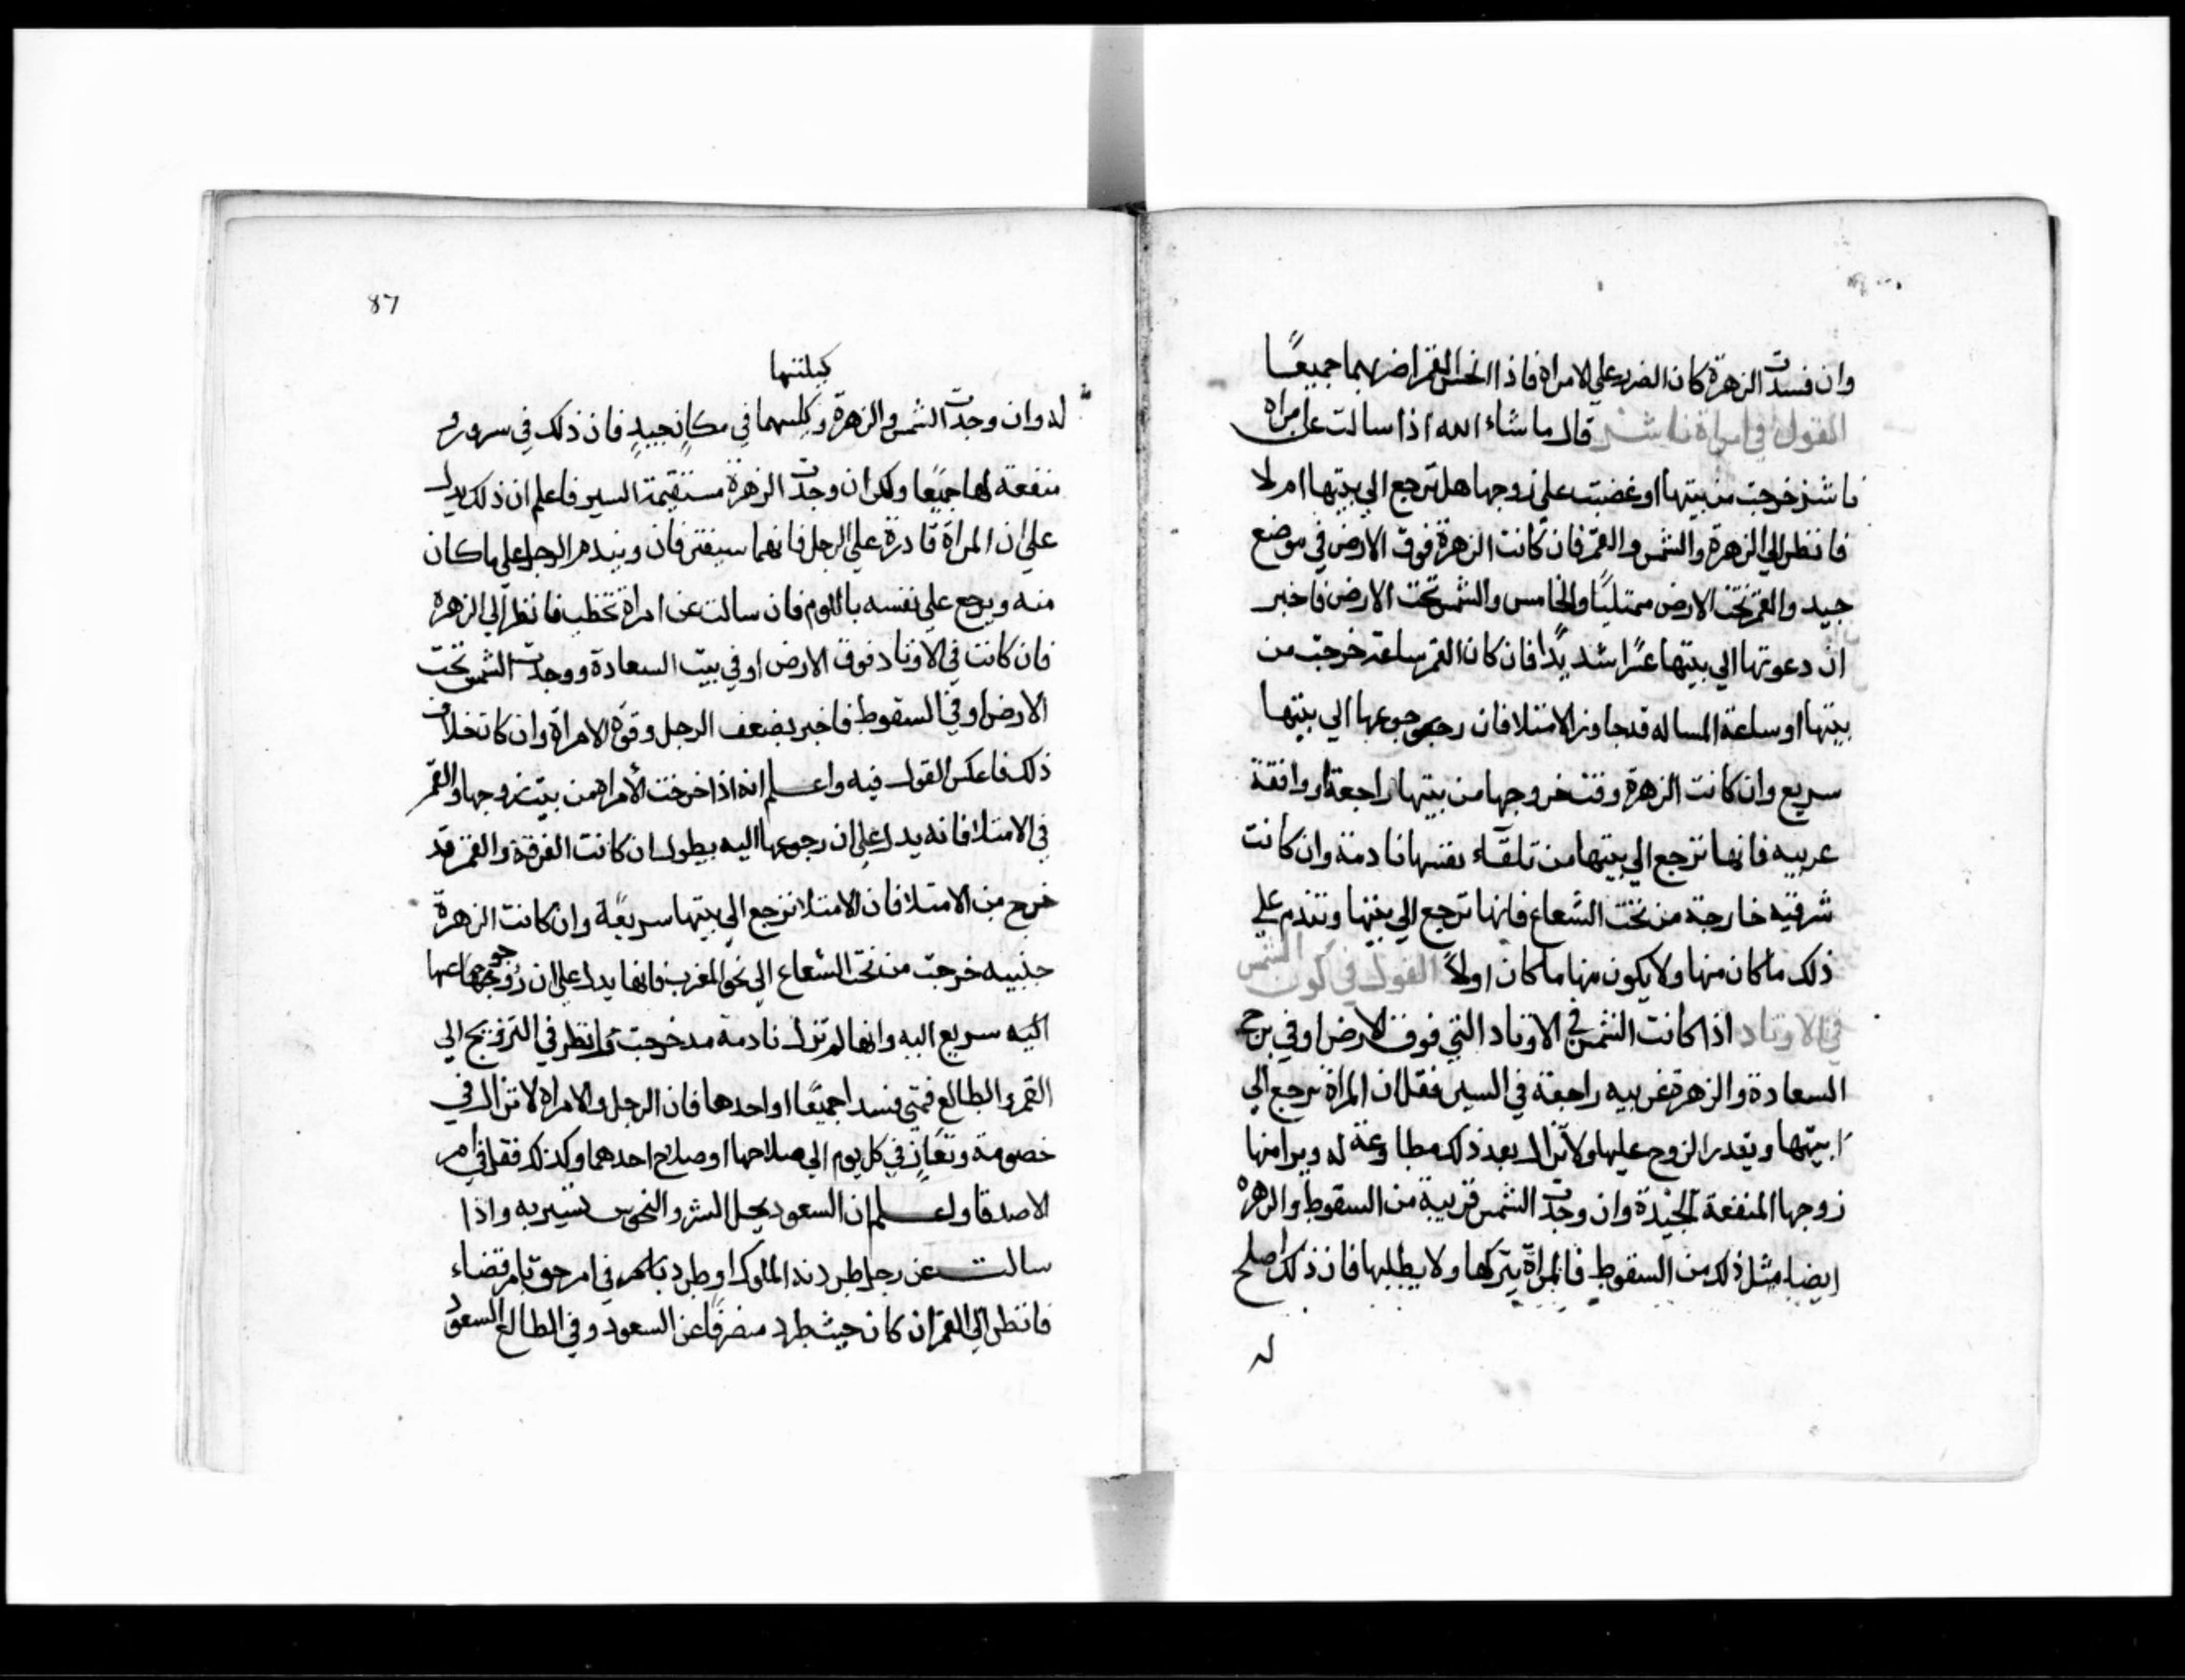 وان فسدت الزهرة كان الضرر علي الامراة فاذا انحس القمر اضر بهما جميعًا
القول في امراة ناشز قال ما شاء الله اذا سالت عن امراه
ناشز خرجت من بيتها او غضبت علي زوجها هل ترجع الي بيتها ام لا
فانظر الي الزهرة والشمس والقمر فان كانت الزهرة فوق الارض في موضع
جيد والقمر تحت الارض ممتليًا والخامس والشمس تحت الارض فاخبر
ان دعوتها الي بيتها عسرًا شديدًا فان كان القمر ساعة خرجت من
بيتها او ساعة المساله قد جاوز الامتلا فان رجوعها الي بيتها
سريع وان كانت الزهرة وقت خروجها من بيتها راجعة او واقفة
غربيه فانها ترجع الي بيتها من تلقاء نفسها نادمة وان كانت
شرقيه خارجة من تحت الشعاع فانها ترجع الي بيتها وتندم علي
ذلك ما كان منها ولا يكون منها ما كان اولاً القول في كون الشمس
في الاوتاد اذا كانت الشمس في الاوتاد التي فوق الارض او في برج
السعادة والزهرة غربيه راجعة في السير فقل ان المراة ترجع الي
بيتها ويقدر الزوج عليها ولا تزال بعد ذلك مطاوعة له ويرا منها
زوجها المنفعة الجيدة وان وجدت الشمس قريبة من السقوط والزهره
ايضا مثل ذلك من السقوط فالمراة يتركها ولا يطلبها فان ذلك اصلح
له
87
كلتيهما
له وان وجدت الشمس والزهرة وكليهما في مكان جيدٍ فان ذلك في سرور و
منفعة لهما جميعًا ولكن ان وجدت الزهرة مستقيمة السير فاعلم ان ذلك يدل
علي ان المراة قادرة علي الرجل فانهما سيفترفان ويندم الرجل علي ما كان
منه ويرجع علي نفسه باللوم فان سالت عن امراة تخطب فانظر الي الزهرة
فان كانت في الاوتاد فوق الارض او في بيت السعادة ووجدت الشمس تحت
الارض او في السقوط فاخبر بضعف الرجل وقوة الامراة وان كان خلاف
ذلك فاعكس القول فيه واعلم انه اذا خرجت الامراة من بيت زوجها والقمر
في الامتلا فانه يدل علي ان رجوعها اليه يطول ان كانت الفرقة والقمر قد
خرج من الامتلا فان الامتلا ترجع الي بيتها سريعًة وان كانت الزهرة
خرجت من تحت الشعاع الي نحو المغرب فانها يدل علي ان رجوعها
اليه سريع اليه وانها لم تزل نادمة مد خرجت ثم انظر في التزويج الي
القمر والطالع فمتي فسدا جميعًا او احدهما فان الرجل والامراة لا تزال في
خصومة في كل يوم الي صلاحهما او صلاح احدهما وكذلك فقل في امر
الاصدقا واعلم ان السعود يحل الشر والنحوس تسير به واذا
سالت عن رجل طردته الملوك او طرد في امر حق بامر قضاء
فانظر الي القمر ان كان حيث طرد منصرفًا عن السعود وفي الطالع السعود